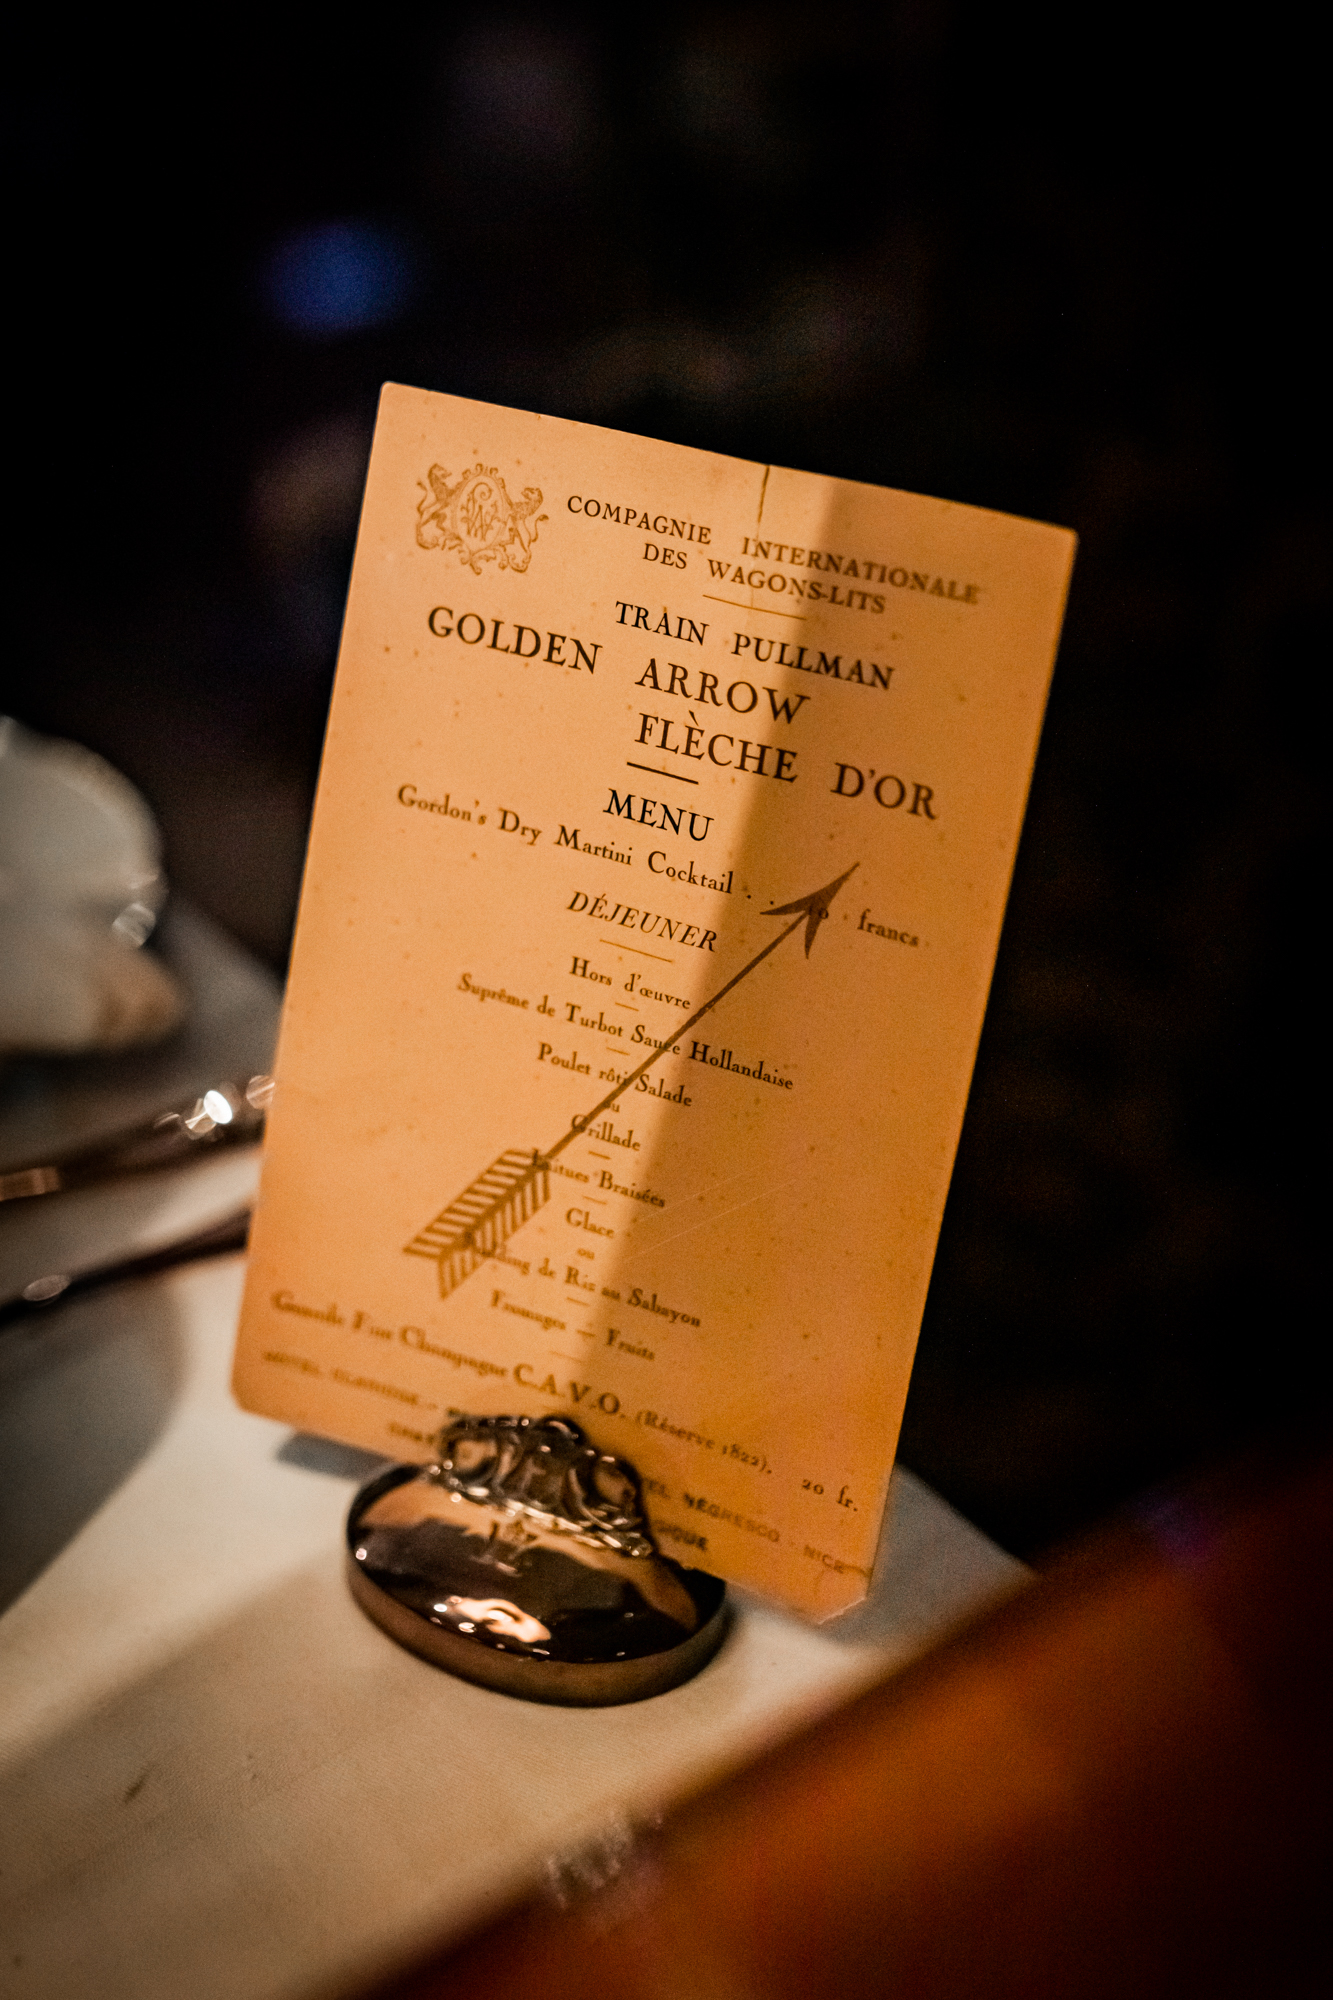 COMPAGNIE INTERNATIONALE
DES WAGONS-LITS
TRAIN PULLMAN
GOLDEN ARROW
FLÈCHE D'OR
MENU
Gordon's Dry Martini Cocktail . . . francs
DÉJEUNER
Hors d'œuvre
Suprême de Turbot Sauce Hollandaise
Poulet rôti Salade
ou
Grillade
Laitues Braisées
Glace
ou
de Riz au Sabayon
Fromages — Fruits
Grande Fine Champagne C.A.V.O. (Réserve 1822). 20 fr.
NÉGRESCO - NICE